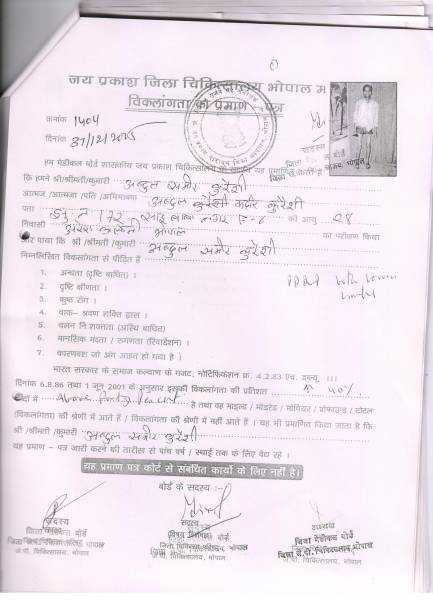 जय प्रकाश जिला चिकित्सालय भोपाल म
विकलांगता का प्रमाण पत्र
क्रमांक 1404
दिनांक 31/12/2005
सदस्य
हम मेडीकल बोर्ड शासकीय जय प्रकाश चिकित्सालय के सदस्य यह प्रमाणित करते है
कि हमने श्री/श्रीमती/कुमारी अब्दुल समीर कुरैशी
आत्मज /आत्मजा /पति /अभिभावक अब्दुल कदीर कुरैशी
पता 172 नगर की आयु 08
निवासी भोपाल का परीक्षण किया
और पाया कि श्री /श्रीमती /कुमारी अब्दुल समीर कुरैशी
निम्नलिखित विकलांगता से पीड़ित हैं
1. अन्धता (दृष्टि बाधित) ।
2. दृष्टि क्षीणता ।
both lower
limbs
3. कुष्ठ रोग ।
4. वाक- श्रवण शक्ति ह्रास ।
5. चलन निःशक्तता (अस्थि बाधित)
6. मानसिक मंदता / रुग्णता (रिटार्डेशन) ।
7. कारणवश जो अंग आहत हो गया है ।
भारत सरकार के समाज कल्याण के गजट, नोटिफिकेशन क्र. 4.2.83 एच. डबल्यू ।।।
दिनांक 6.8.86 तथा 1 जून 2001 के अनुसार इसकी विकलांगता की प्रतिशत ↑ 40%
शब्दों में Above forty percent है तथा वह माइल्ड / मोडरेड / सीवियर / प्रोफाउन्ड / टोटल
(विकलांगता) की श्रेणी में आते हैं / विकलांगता की श्रेणी में नहीं आते हैं । यह भी प्रमाणित किया जाता है कि
श्री /श्रीमती /कुमारी अब्दुल समीर कुरैशी
यह प्रमाण – पत्र जारी करने की तारीख से पांच वर्ष / स्थाई तक के लिए वैद्य रहे ।
यह प्रमाण पत्र कोर्ट से संबंधित कार्यो के लिए नहीं है।
बोर्ड के सदस्य :-
सदस्य
जिला मेडीकल बोर्ड
जे.पी. चिकित्सालय, भोपाल
सदस्य
जिला मेडीकल बोर्ड
जे.पी. चिकित्सालय, भोपाल
अध्यक्ष
जिला मेडीकल बोर्ड
जिला जे.पी. चिकित्सालय, भोपाल